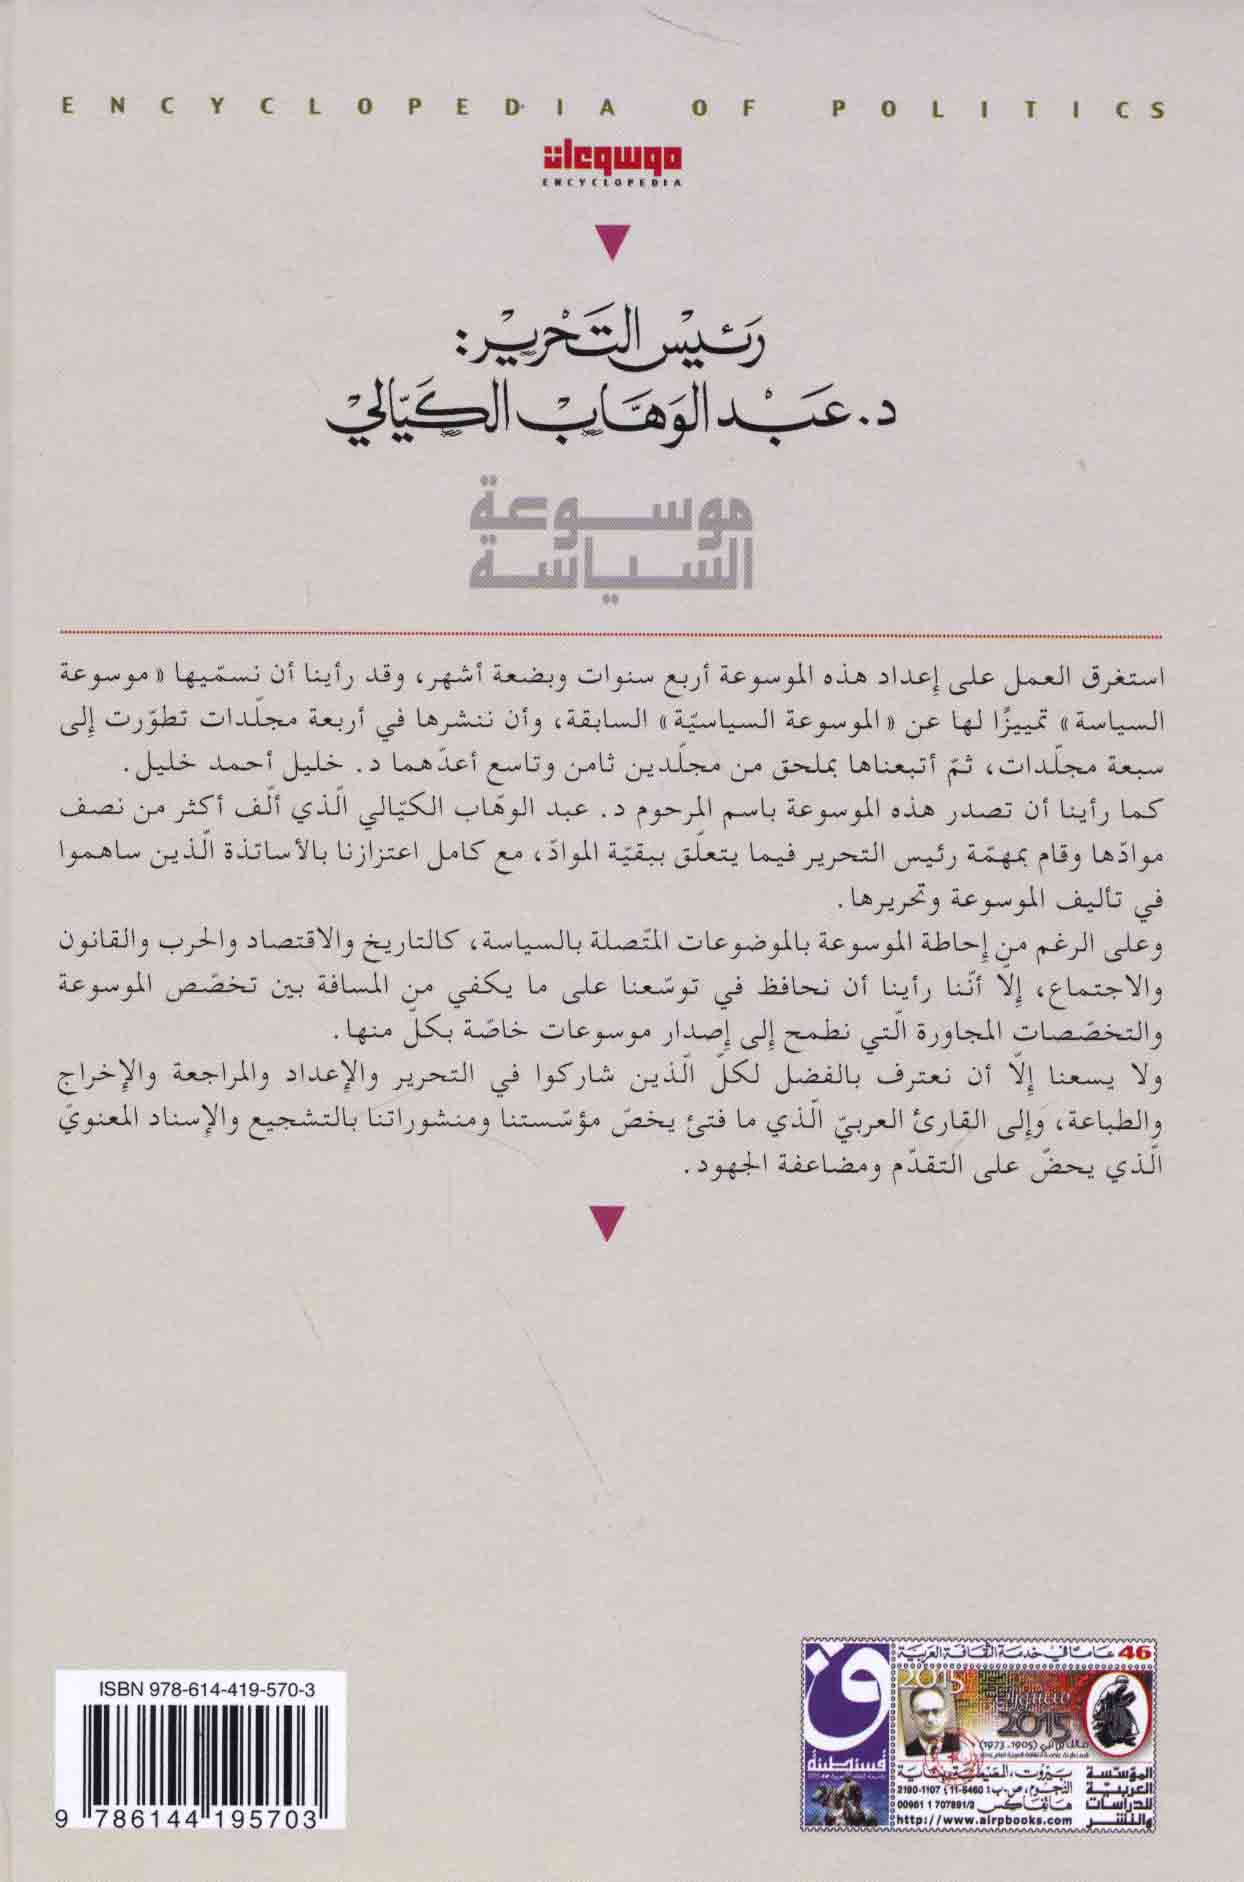 ENCYCLOPEDIA OF POLITICS
موسوعات
ENCYCLOPEDIA
رَئيسْ التَحْرِيرْ:
د. عَبْد الوَهَّابْ الكَيّاليْ
موسوعة
السياسة
استغرق العمل على إعداد هذه الموسوعة أربع سنوات وبضعة أشهر، وقد رأينا أن نسمّيها «موسوعة
السياسة» تمييزًا لها عن «الموسوعة السياسيّة» السابقة، وأن ننشرها في أربعة مجلّدات تطوّرت إلى
سبعة مجلّدات، ثمّ أتبعناها بملحق من مجلّدين ثامن وتاسع أعدّهما د. خليل أحمد خليل.
كما رأينا أن تصدر هذه الموسوعة باسم المرحوم د. عبد الوهّاب الكيّالي الّذي ألّف أكثر من نصف
موادّها وقام بمهمّة رئيس التحرير فيما يتعلّق ببقيّة الموادّ، مع كامل اعتزازنا بالأساتذة الّذين ساهموا
في تأليف الموسوعة وتحريرها.
وعلى الرغم من إحاطة الموسوعة بالموضوعات المتّصلة بالسياسة، كالتاريخ والاقتصاد والحرب والقانون
والاجتماع، إلّا أنّنا رأينا أن نحافظ في توسّعنا على ما يكفي من المسافة بين تخصّص الموسوعة
والتخصّصات المجاورة الّتي نطمح إلى إصدار موسوعات خاصّة بكلّ منها.
ولا يسعنا إلّا أن نعترف بالفضل لكلّ الّذين شاركوا في التحرير والإعداد والمراجعة والإخراج
والطباعة، وإلى القارئ العربيّ الّذي ما فتئ يخصّ مؤسّستنا ومنشوراتنا بالتشجيع والإسناد المعنويّ
الّذي يحضّ على التقدّم ومضاعفة الجهود.
ISBN 978-614-419-570-3
9 786144 195703
46 عاما في خدمة الثقافة العربية
2015
2015
مالك بن نبي (1905- 1973)
ق
قسنطينة
المؤسسة
العربية
للدراسات
والنشر
بيروت، الصنايع، بناية
النجوم، ص.ب: 5460-11، 1107-2190
هاتفاكس 00961 1 707891/2
http://www.airpbooks.com